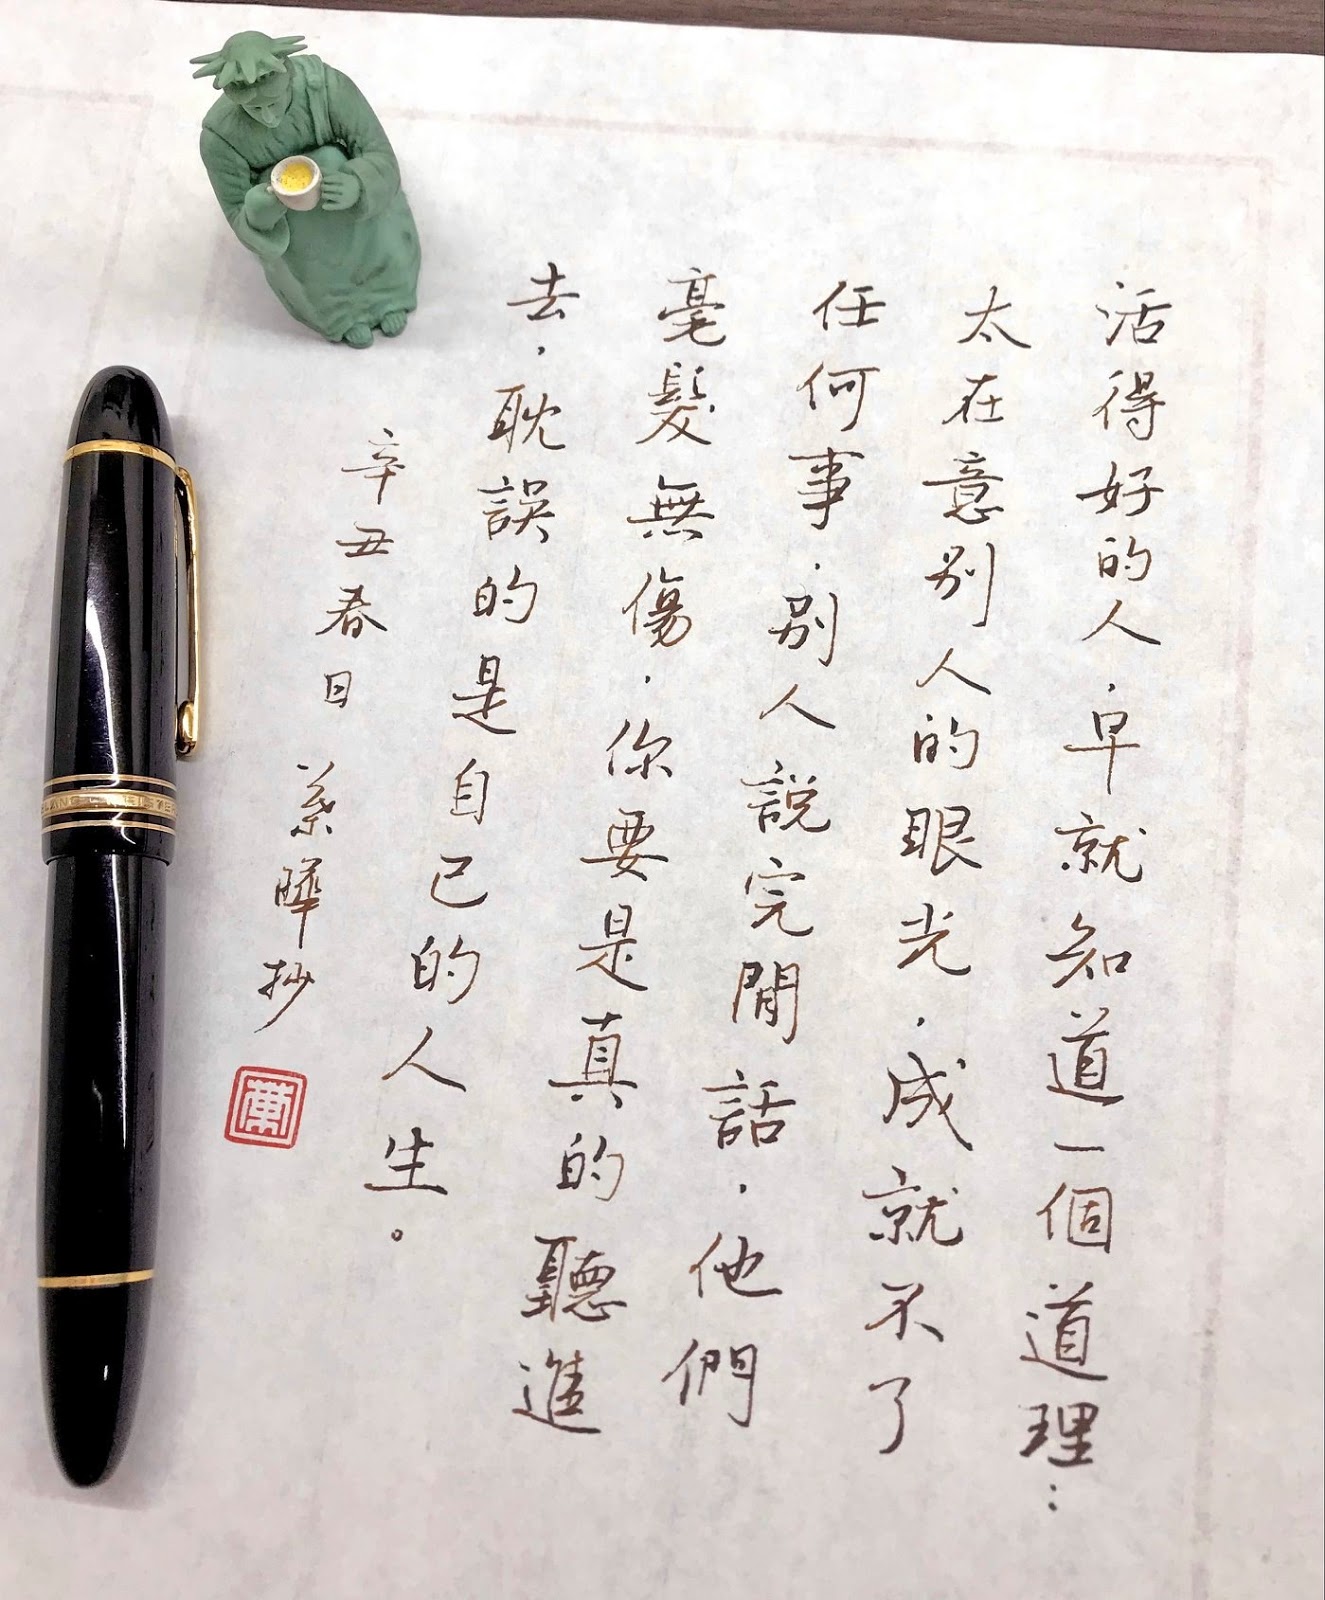 活得好的人，早就知道一個道理：
太在意別人的眼光，成就不了
任何事，別人說完閒話，他們
毫髮無傷，你要是真的聽進
去，耽誤的是自己的人生。
辛丑春日 葉曄抄